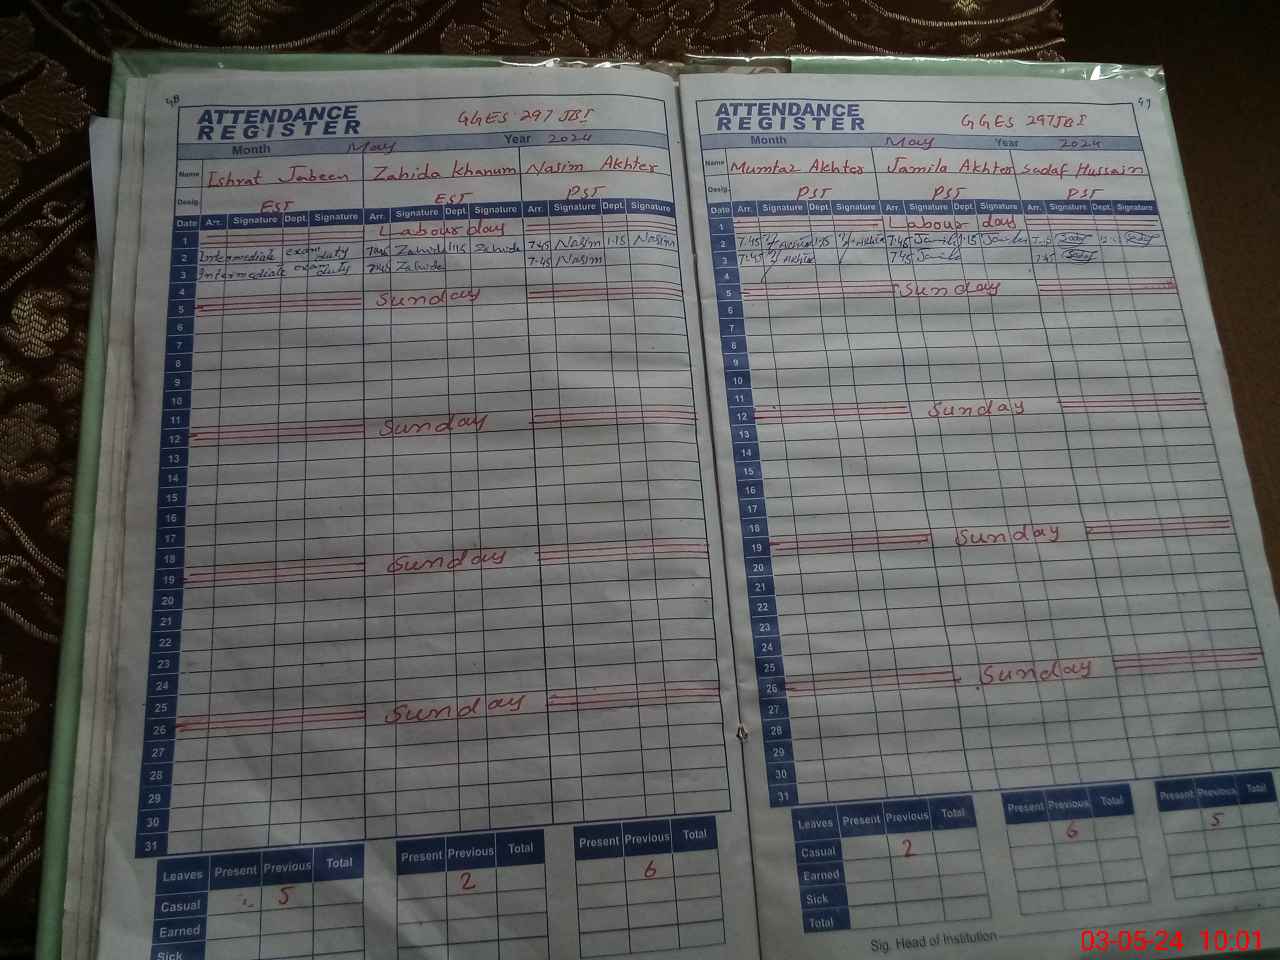 48
ATTENDANCE
REGISTER
GGES 297 JB I
Month May Year 2024
Name Ishrat Jabeen Zahida Khanum Nasim Akhter
Desig. EST EST PST
Date Arr. Signature Dept. Signature Arr. Signature Dept. Signature Arr. Signature Dept. Signature
1 Labour day
2 Intermediate exam duty 7:45 Zahida 1:15 Zahida 7:45 Nasim 1:15 Nasim
3 Intermediate exam duty 7:45 Zahida 7:45 Nasim
4
5 Sunday
6
7
8
9
10
11
12 Sunday
13
14
15
16
17
18
19 Sunday
20
21
22
23
24
25
26 Sunday
27
28
29
30
31
Leaves Present Previous Total Present Previous Total Present Previous Total
Casual 5 2 6
Earned
Sick
49
ATTENDANCE
REGISTER
GGES 297 JB I
Month May Year 2024
Name Mumtaz Akhter Jamila Akhter Sadaf Hussain
Desig. PST PST PST
Date Arr. Signature Dept. Signature Arr. Signature Dept. Signature Arr. Signature Dept. Signature
1 Labour day
2 7:45 M Akhter 1:15 M Akhter 7:45 Jamila 1:15 Jamila 7:45 Sadaf Sadaf
3 7:45 M Akhter 7:45 Jamila 7:45 Sadaf
4
5 Sunday
6
7
8
9
10
11
12 Sunday
13
14
15
16
17
18
19 Sunday
20
21
22
23
24
25
26 Sunday
27
28
29
30
31
Leaves Present Previous Total Present Previous Total Present Previous Total
Casual 2 6 5
Earned
Sick
Total
Sig. Head of Institution
03-05-24 10:01